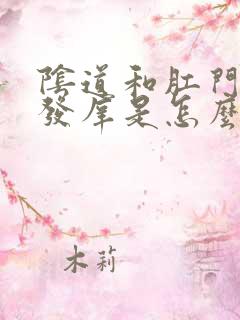 陰道和肛門
發庠是怎麼
木莉